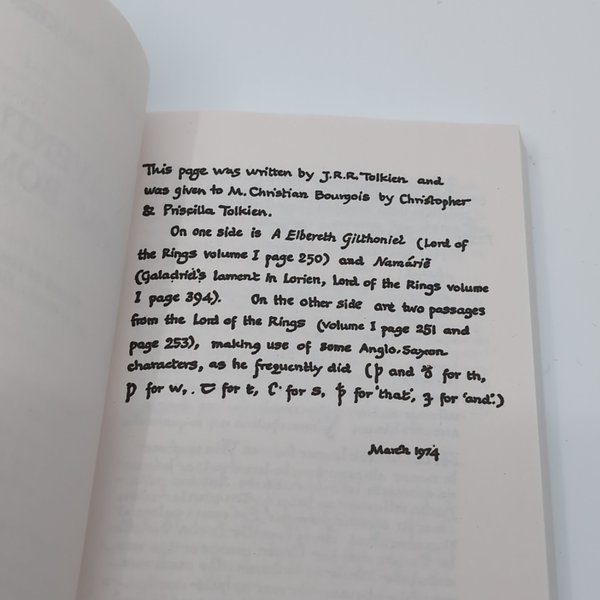 This page was written by J.R.R. Tolkien and
was given to M. Christian Bourgois by Christopher
& Priscilla Tolkien.
On one side is A Elbereth Gilthoniel (Lord of
the Rings volume I page 250) and Namárië
(Galadriel's lament in Lorien, Lord of the Rings volume
I page 394). On the other side are two passages
from the Lord of the Rings (volume I page 251 and
page 253), making use of some Anglo-Saxon
characters, as he frequently did (þ and ð for th,
ƿ for w, . ꞇ for t, ꞅ for s, ꝥ for 'that', ⁊ for 'and'.)
March 1974